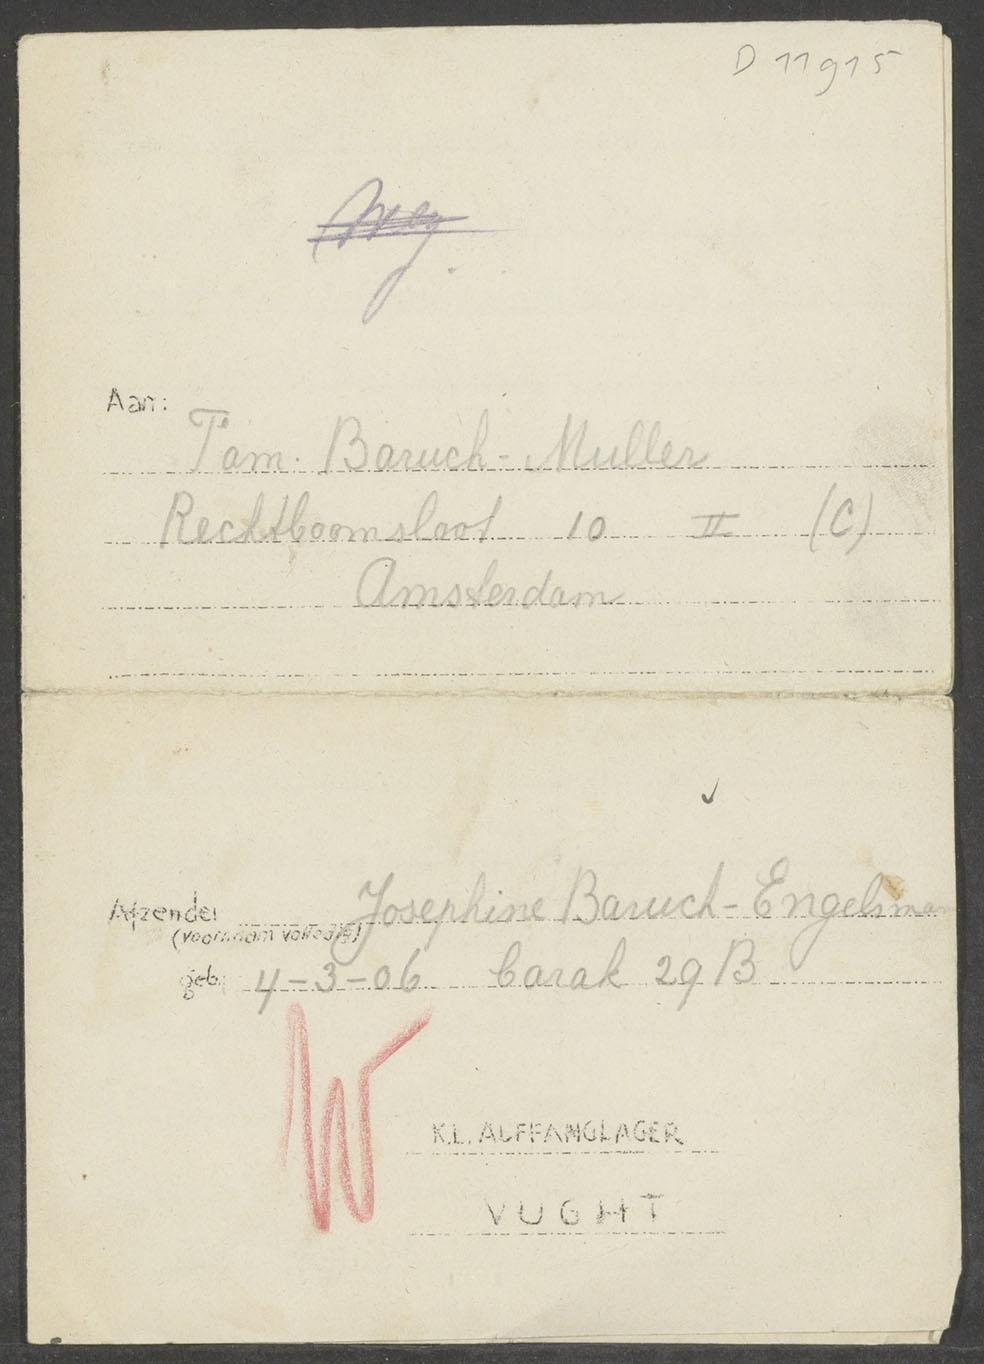 D 11915
Weg.
Aan:
Fam. Baruch-Muller
Rechtboomsloot 10 II (C)
Amsterdam
Afzender Josephine Baruch-Engelsman
(voornaam volledig)
geb. 4-3-06 barak 29 B
W
K.L. AUFFANGLAGER
VUGHT